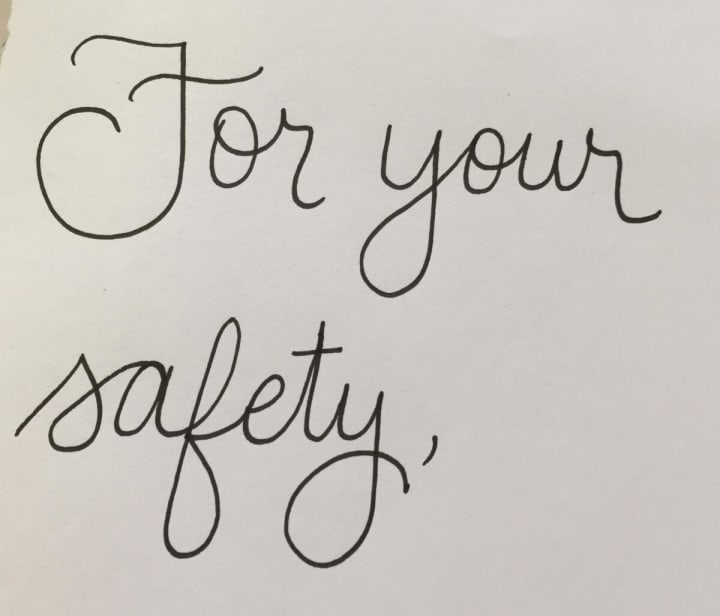 For your
safety,